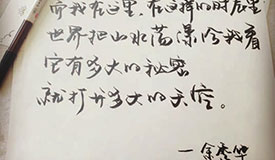 而我在这里，在这样的时辰里
世界把山水荡漾给我看
它有多大的秘密
就打开多大的天空。
—余秀华